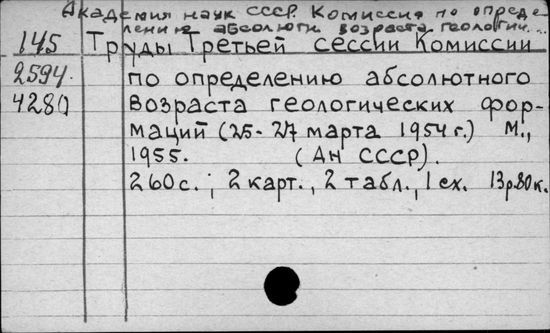 Академия наук СССР. Комиссия по опреде-
лению абсолютн. возраста геологич...
145 Труды Третьей сессии Комиссии
2594. по определению абсолютного
4280 возраста геологических фор-
маций (25-27 марта 1954 г.) М.,
1955. (АН СССР).
260 с., 2 карт., 2 табл., 1 сх. 13р.80к.